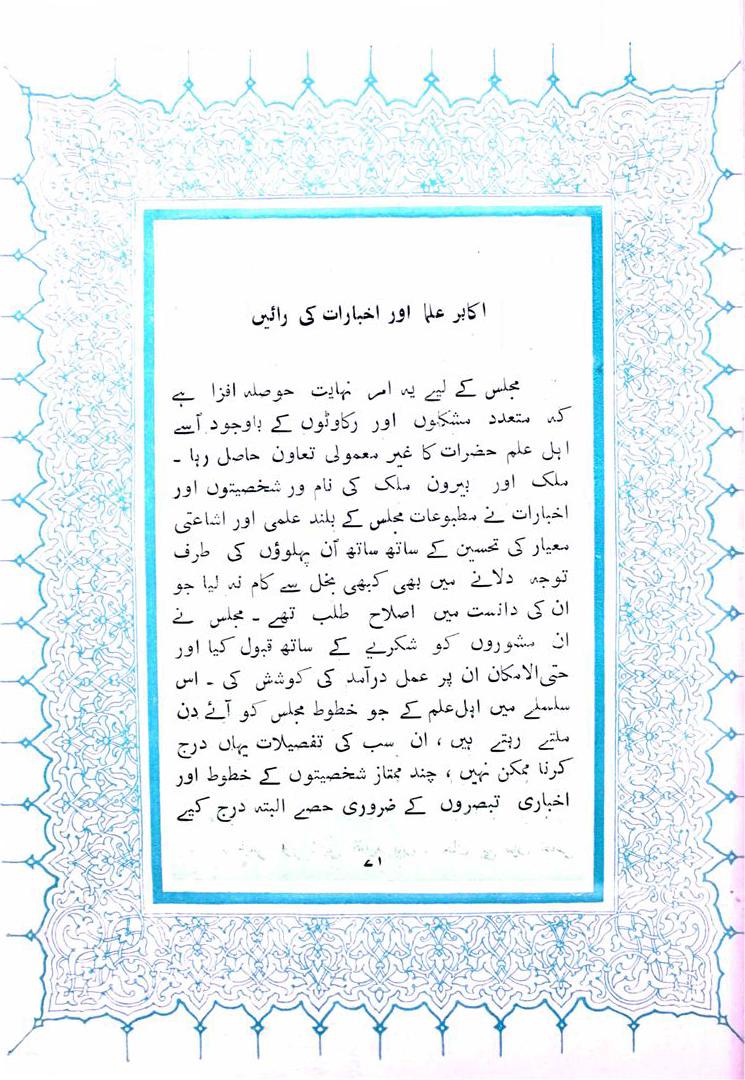 اکابر علما اور اخبارات کی رائیں
مجلس کے لیے یہ امر نہایت حوصلہ افزا ہے
کہ متعدد مشکلوں اور رکاوٹوں کے باوجود اُسے
اہل علم حضرات کا غیر معمولی تعاون حاصل رہا ۔
ملک اور بیرون ملک کی نام ور شخصیتوں اور
اخبارات نے مطبوعات مجلس کے بلند علمی اور اشاعتی
معیار کی تحسین کے ساتھ ساتھ اُن پہلوؤں کی طرف
توجہ دلانے میں بھی کبھی بخل سے کام نہ لیا جو
ان کی دانست میں اصلاح طلب تھے ۔ مجلس نے
ان مشوروں کو شکریے کے ساتھ قبول کیا اور
حتی الامکان ان پر عمل درآمد کی کوشش کی ۔ اس
سلسلے میں اہل علم کے جو خطوط مجلس کو آئے دن
ملتے رہتے ہیں ، ان سب کی تفصیلات یہاں درج
کرنا ممکن نہیں ، چند ممتاز شخصیتوں کے خطوط اور
اخباری تبصروں کے ضروری حصے البتہ درج کیے
۷۱